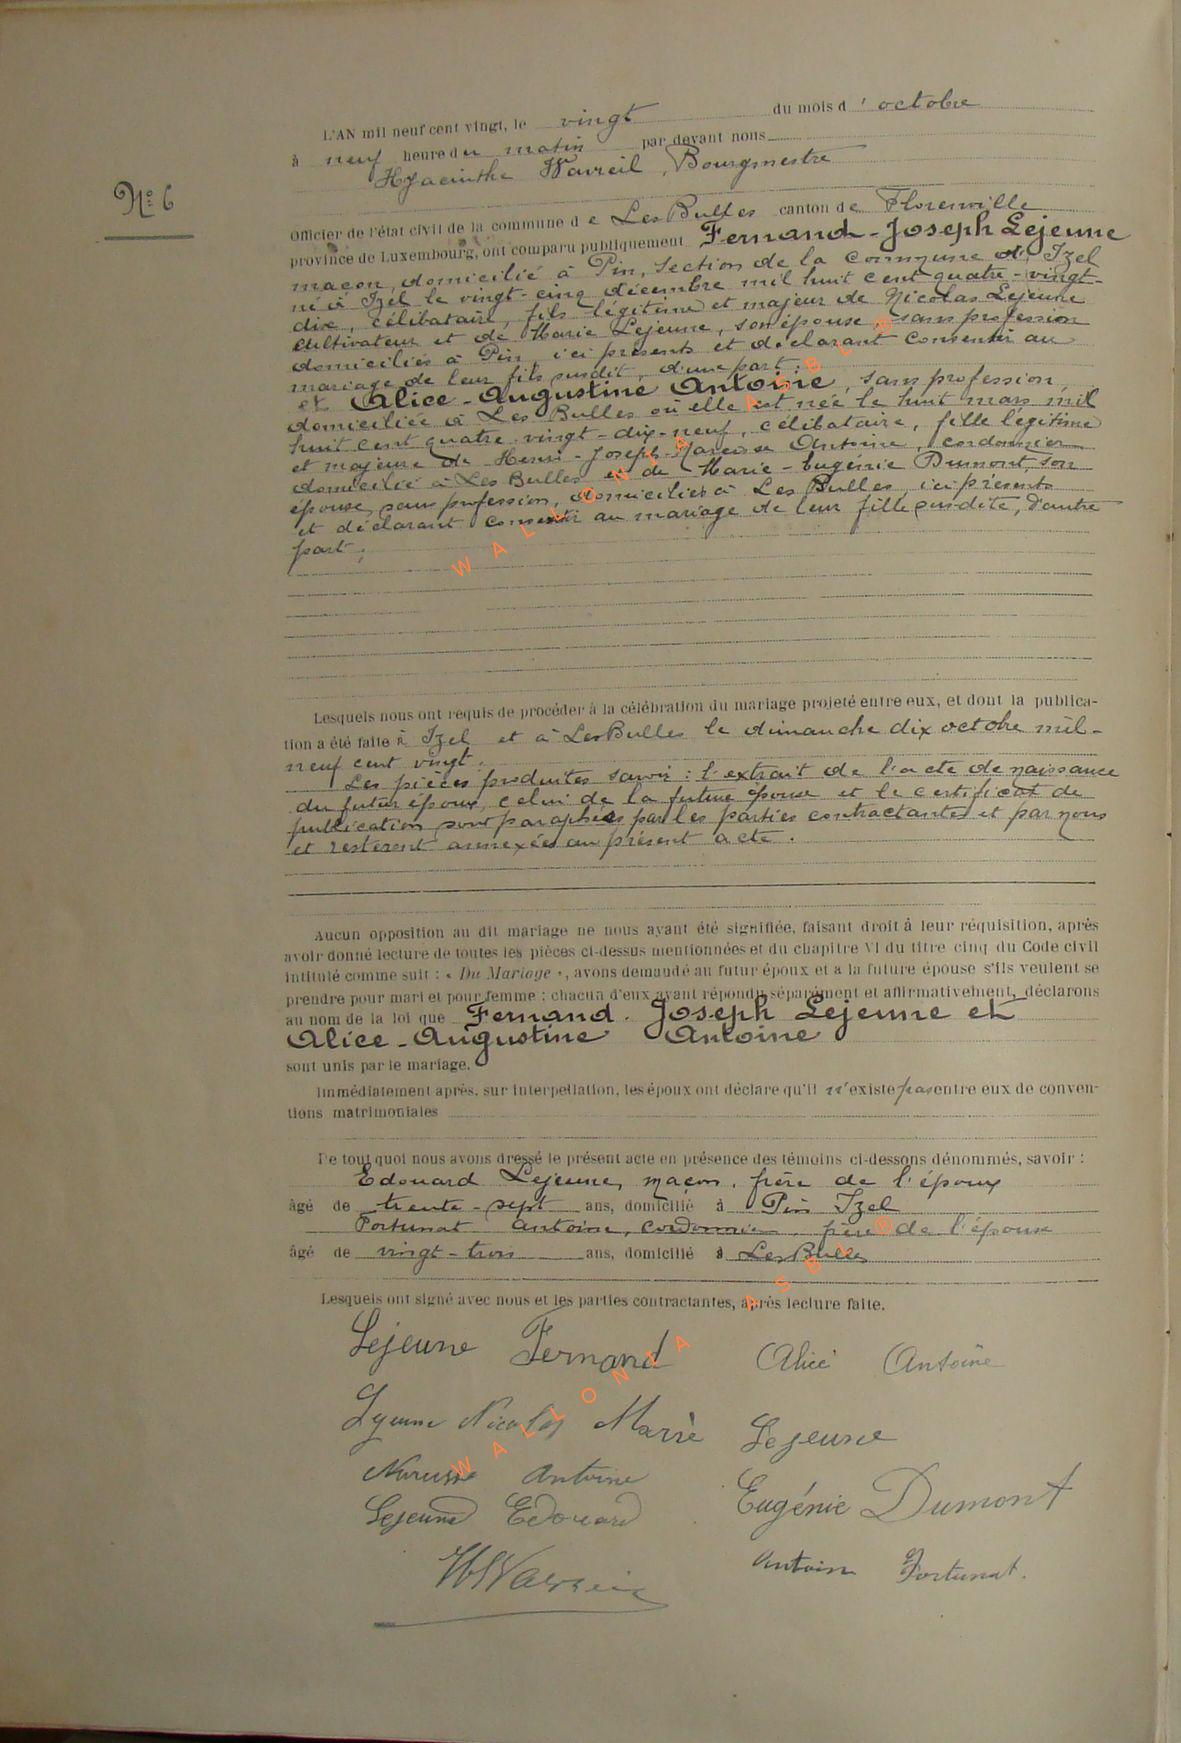 L'AN mil neuf cent vingt, le vingt du mois d'octobre
à neuf heure du matin par devant nous
Hyacinthe Wavreil, Bourgmestre
N° 6
Officier de l'état civil de la commune de Les Bulles canton de Florenville
province de Luxembourg, ont comparu publiquement Fernand-Joseph Lejeune
maçon, domicilié à Pin, section de la commune d'Izel
né à Izel le vingt-cinq décembre mil huit cent quatre-vingt-
dix, célibataire, fils légitime et majeur de Nicolas Lejeune
cultivateur et de Marie Lejeune, son épouse, sans profession
domiciliés à Pin, ici présents et déclarant consentir au
mariage de leur fils susdit, d'une part;
et Alice-Augustine Antoine, sans profession,
domiciliée à Les Bulles où elle est née le huit mars mil
huit cent quatre-vingt-dix-neuf, célibataire, fille légitime
et majeure de Henri-Joseph-Narcisse Antoine, cordonnier
domicilié à Les Bulles et de Marie-Eugénie Dumont, son
épouse, sans profession, domiciliés à Les Bulles, ici présents
et déclarant consentir au mariage de leur fille susdite, d'autre
part;
Lesquels nous ont requis de procéder à la célébration du mariage projeté entre eux, et dont la publica-
tion a été faite à Izel et à Les Bulles le dimanche dix octobre mil-
neuf cent vingt.
Les pièces produites savoir: l'extrait de l'acte de naissance
du futur époux, celui de la future épouse et le certificat de
publication sont paraphées par les parties contractantes et par nous
et resteront annexées au présent acte.
Aucun opposition au dit mariage ne nous ayant été signifiée, faisant droit à leur réquisition, après
avoir donné lecture de toutes les pièces ci-dessus mentionnées et du chapitre VI du titre cinq du Code civil
intitulé comme suit : « Du Mariage », avons demandé au futur époux et a la future épouse s'ils veulent se
prendre pour mari et pour femme : chacun d'eux ayant répondu séparément et affirmativement, déclarons
au nom de la loi que Fernand-Joseph Lejeune et
Alice-Augustine Antoine
sont unis par le mariage.
Immédiatement après, sur interpellation, les époux ont déclare qu'il n'existe pas entre eux de conven-
tions matrimoniales
De tout quoi nous avons dressé le présent acte en présence des témoins ci-dessons dénommés, savoir :
Edouard Lejeune, maçon, frère de l'époux
âgé de trente-sept ans, domicilié à Pin Izel
Fortunat Antoine, cordonnier, frère de l'épouse
âgé de vingt-trois ans, domicilié à Les Bulles
Lesquels ont signé avec nous et les parties contractantes, après lecture faite.
Lejeune Fernand Alice Antoine
Lejeune Nicolas Marie Lejeune
Narcisse Antoine
Eugénie Dumont
Lejeune Edouard
Antoine Fortunat.
H Wavreil
WALLONIA ASBL ®
WALLONIA ASBL ®